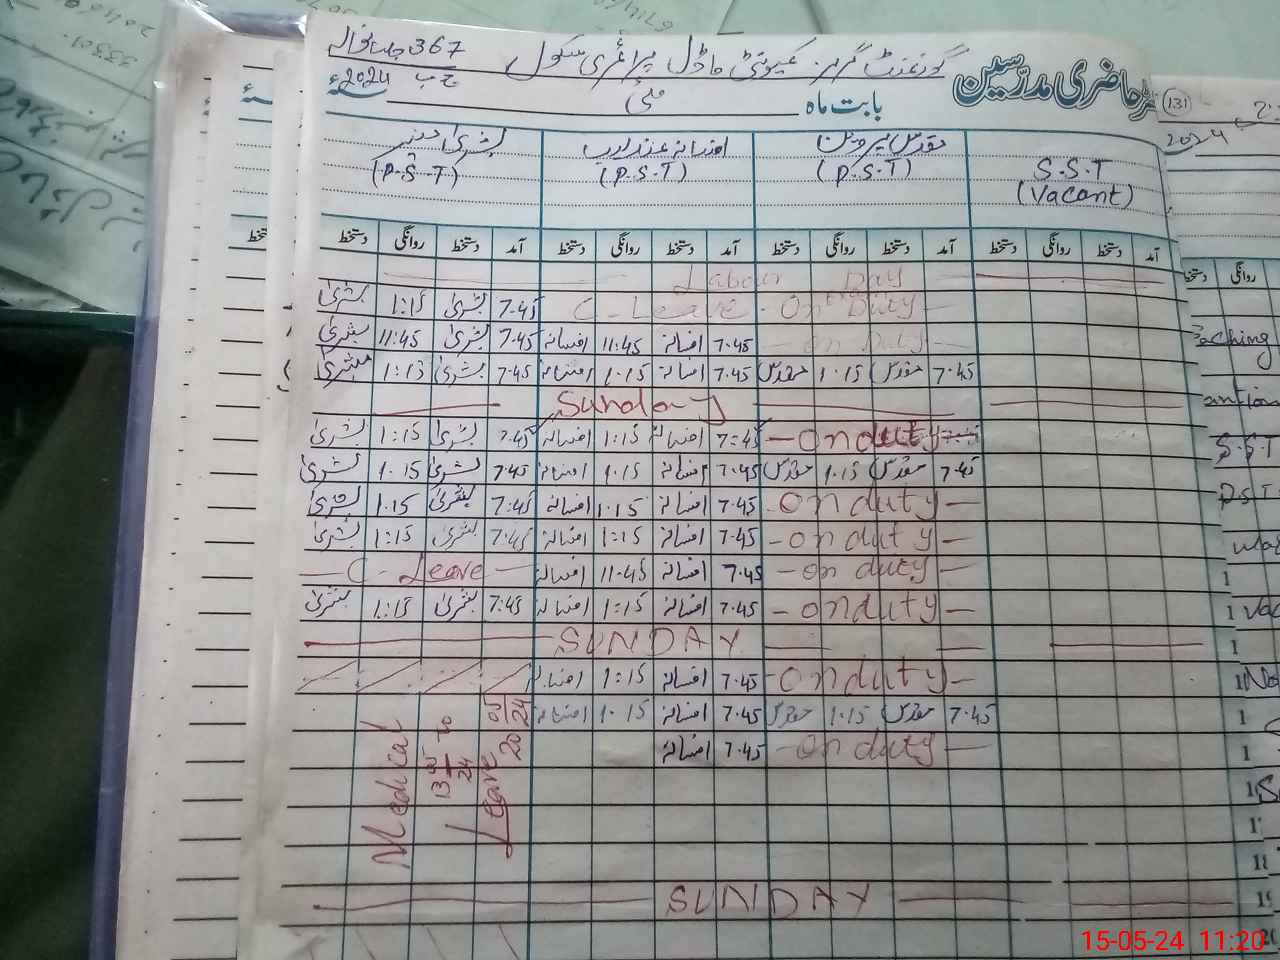 رجسٹر حاضری مدرّسین
گورنمنٹ گرلز کمیونٹی ماڈل پرائمری سکول 367 ج ب
بابت ماہ مئی 2024 سنہ
131
2024
S.S.T (Vacant)
مقدس پروین (P.S.T)
افسانہ (P.S.T)
بشریٰ (P.S.T)
آمد دستخط روانگی دستخط آمد دستخط روانگی دستخط آمد دستخط روانگی دستخط آمد دستخط روانگی دستخط
Labour Day
On Duty C-Leave 7.45 بشریٰ 1:15 بشریٰ
On Duty 7.45 افسانہ 11:45 افسانہ 7.45 بشریٰ 11:45 بشریٰ
7.45 مقدس 1.15 مقدس 7.45 افسانہ 1.15 افسانہ 7.45 بشریٰ 1:15 بشریٰ
Sunday
On duty 7:45 افسانہ 1:15 افسانہ 7.45 بشریٰ 1:15 بشریٰ
7.45 مقدس 1.15 مقدس 7.45 افسانہ 1.15 افسانہ 7.45 بشریٰ 1.15 بشریٰ
On duty 7.45 افسانہ 1.15 افسانہ 7:45 بشریٰ 1.15 بشریٰ
on duty 7.45 افسانہ 1:15 افسانہ 7:45 بشریٰ 1:15 بشریٰ
on duty 7.45 افسانہ 11:45 افسانہ C-Leave
on duty 7.45 افسانہ 1:15 افسانہ 7:45 بشریٰ 1:15 بشریٰ
SUNDAY
on duty 7.45 افسانہ 1:15 افسانہ
7.45 مقدس 1.15 مقدس 7.45 افسانہ 1.15 افسانہ
on duty 7.45 افسانہ
Medical Leave
13 05 24 to 20 05 24
SUNDAY
15-05-24 11:20